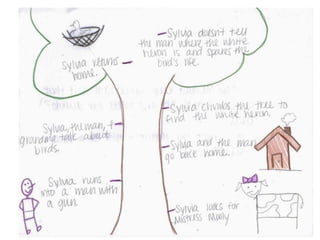 Sylvia doesn't tell
the man where the white
heron is and spares the
bird's life.
Sylvia returns
home.
Sylvia climbs the tree to
find the white heron.
Sylvia, the man, +
grandma talk about
birds.
Sylvia and the man
go back home.
Sylvia runs
into a man with
a gun.
Sylvia looks for
Mistress Moolly